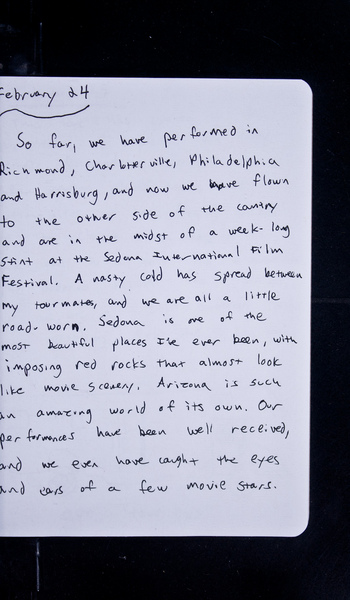 February 24
So far, we have performed in
Richmond, Charlottesville, Philadelphia
and Harrisburg, and now we have flown
to the other side of the country
and are in the midst of a week-long
stint at the Sedona International Film
Festival. A nasty cold has spread between
my tourmates, and we are all a little
road-worn. Sedona is one of the
most beautiful places I've ever been, with
imposing red rocks that almost look
like movie scenery. Arizona is such
an amazing world of its own. Our
performances have been well received,
and we even have caught the eyes
and ears of a few movie stars.